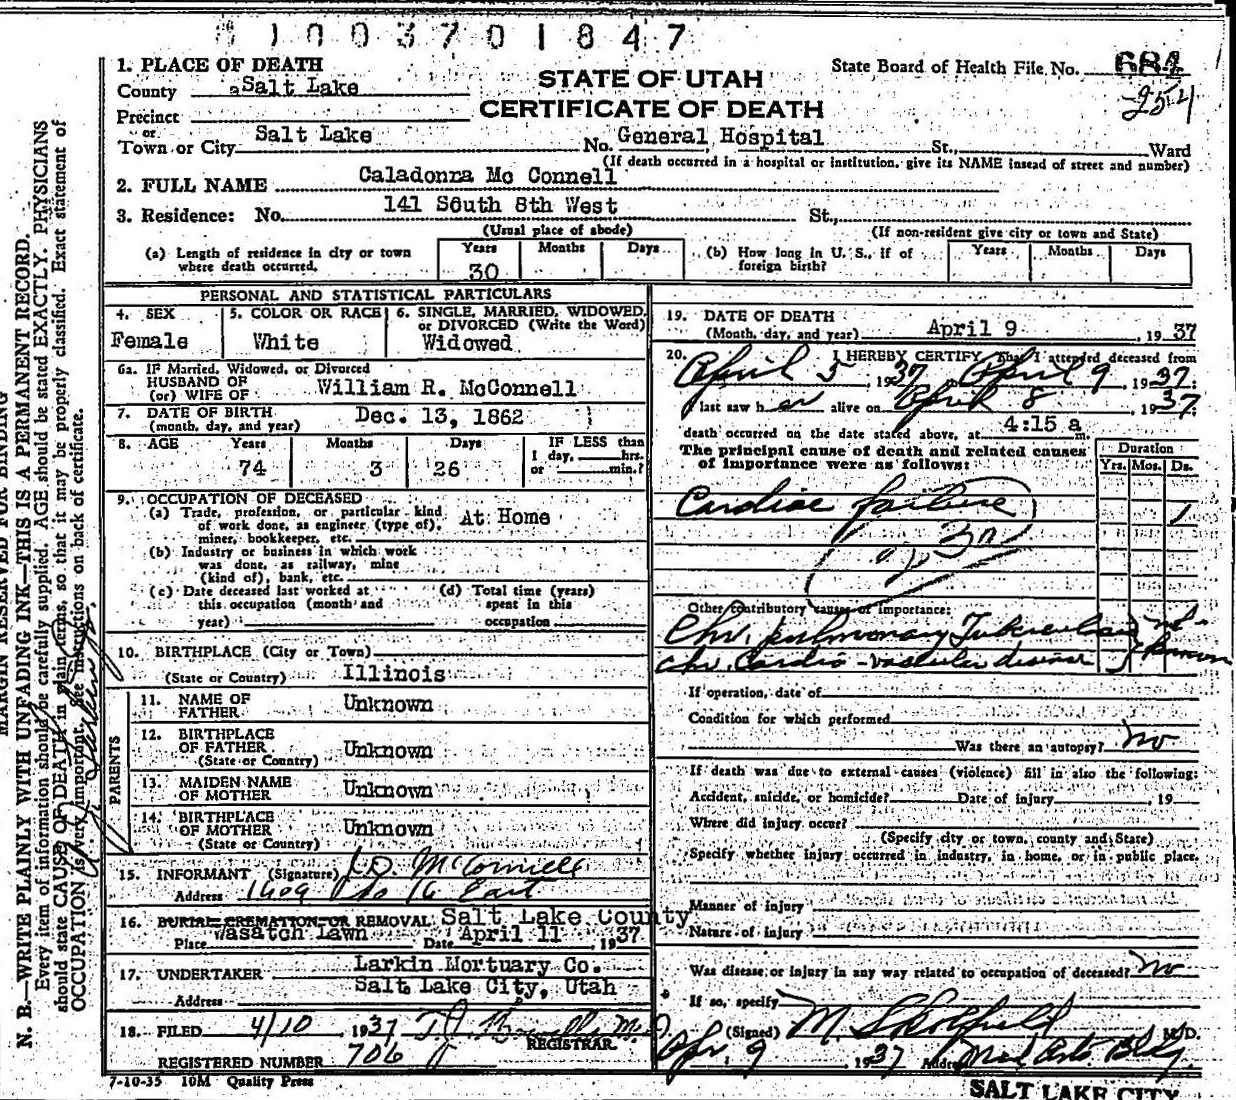 1003701847
1. PLACE OF DEATH
County Salt Lake
STATE OF UTAH
CERTIFICATE OF DEATH
State Board of Health File No. 684
254
Precinct
or
Town or City Salt Lake No. General Hospital St., Ward
(If death occurred in a hospital or institution, give its NAME insead of street and number)
2. FULL NAME Caladonna Mc Connell
3. Residence: No. 141 South 8th West St.,
(Usual place of abode) (If non-resident give city or town and State)
(a) Length of residence in city or town where death occurred. Years 30 Months Days
(b) How long in U. S., if of foreign birth? Years Months Days
PERSONAL AND STATISTICAL PARTICULARS
4. SEX Female
5. COLOR OR RACE White
6. SINGLE, MARRIED, WIDOWED, or DIVORCED (Write the Word) Widowed
6a. IF Married, Widowed, or Divorced
HUSBAND OF
(or) WIFE OF William R. McConnell
7. DATE OF BIRTH
(month, day, and year) Dec. 13, 1862
8. AGE Years 74 Months 3 Days 26
IF LESS than
1 day, hrs.
or min.?
9. OCCUPATION OF DECEASED
(a) Trade, profession, or particular kind
of work done, as engineer (type of),
miner, bookkeeper, etc. At Home
(b) Industry or business in which work
was done, as railway, mine
(kind of), bank, etc.
(c) Date deceased last worked at
this occupation (month and
year)
(d) Total time (years)
spent in this
occupation
10. BIRTHPLACE (City or Town)
(State or Country) Illinois
PARENTS
11. NAME OF
FATHER Unknown
12. BIRTHPLACE
OF FATHER
(State or Country) Unknown
13. MAIDEN NAME
OF MOTHER Unknown
14. BIRTHPLACE
OF MOTHER
(State or Country) Unknown
15. INFORMANT (Signature) L.D. McConnell
Address 1409 So 16 East
16. BURIAL CREMATION OR REMOVAL Salt Lake County
Place Wasatch Lawn Date April 11 1937
17. UNDERTAKER Larkin Mortuary Co.
Address Salt Lake City, Utah
18. FILED 4/10, 1937
REGISTRAR.
REGISTERED NUMBER 706
7-10-35 10M Quality Press
19. DATE OF DEATH
(Month, day, and year) April 9, 1937
20. I HEREBY CERTIFY, That I attended deceased from
April 5, 1937, to April 9, 1937;
I last saw her alive on April 8 1937;
death occurred on the date stated above, at 4:15 a m.
The principal cause of death and related causes
of importance were as follows:
Duration
Yrs. Mos. Ds.
Cardiac failure 1
Other contributory causes of importance:
Chr. pulmonary Tuberculosis not
Chr. Cardio-vascular disease known
If operation, date of
Condition for which performed
Was there an autopsy? No
If death was due to external causes (violence) fill in also the following:
Accident, suicide, or homicide? Date of injury, 19
Where did injury occur?
(Specify city or town, county and State)
Specify whether injury occurred in industry, in home, or in public place.
Manner of injury
Nature of injury
Was disease or injury in any way related to occupation of deceased? No
If so, specify
(Signed) M. M.D.
Apr. 9, 1937 Address Med Arts Bldg.
SALT LAKE CITY
MARGIN RESERVED FOR BINDING
N. B.—WRITE PLAINLY WITH UNFADING INK—THIS IS A PERMANENT RECORD.
Every item of information should be carefully supplied. AGE should be stated EXACTLY. PHYSICIANS
should state CAUSE OF DEATH in plain terms, so that it may be properly classified. Exact statement of
OCCUPATION is very important. See instructions on back of certificate.